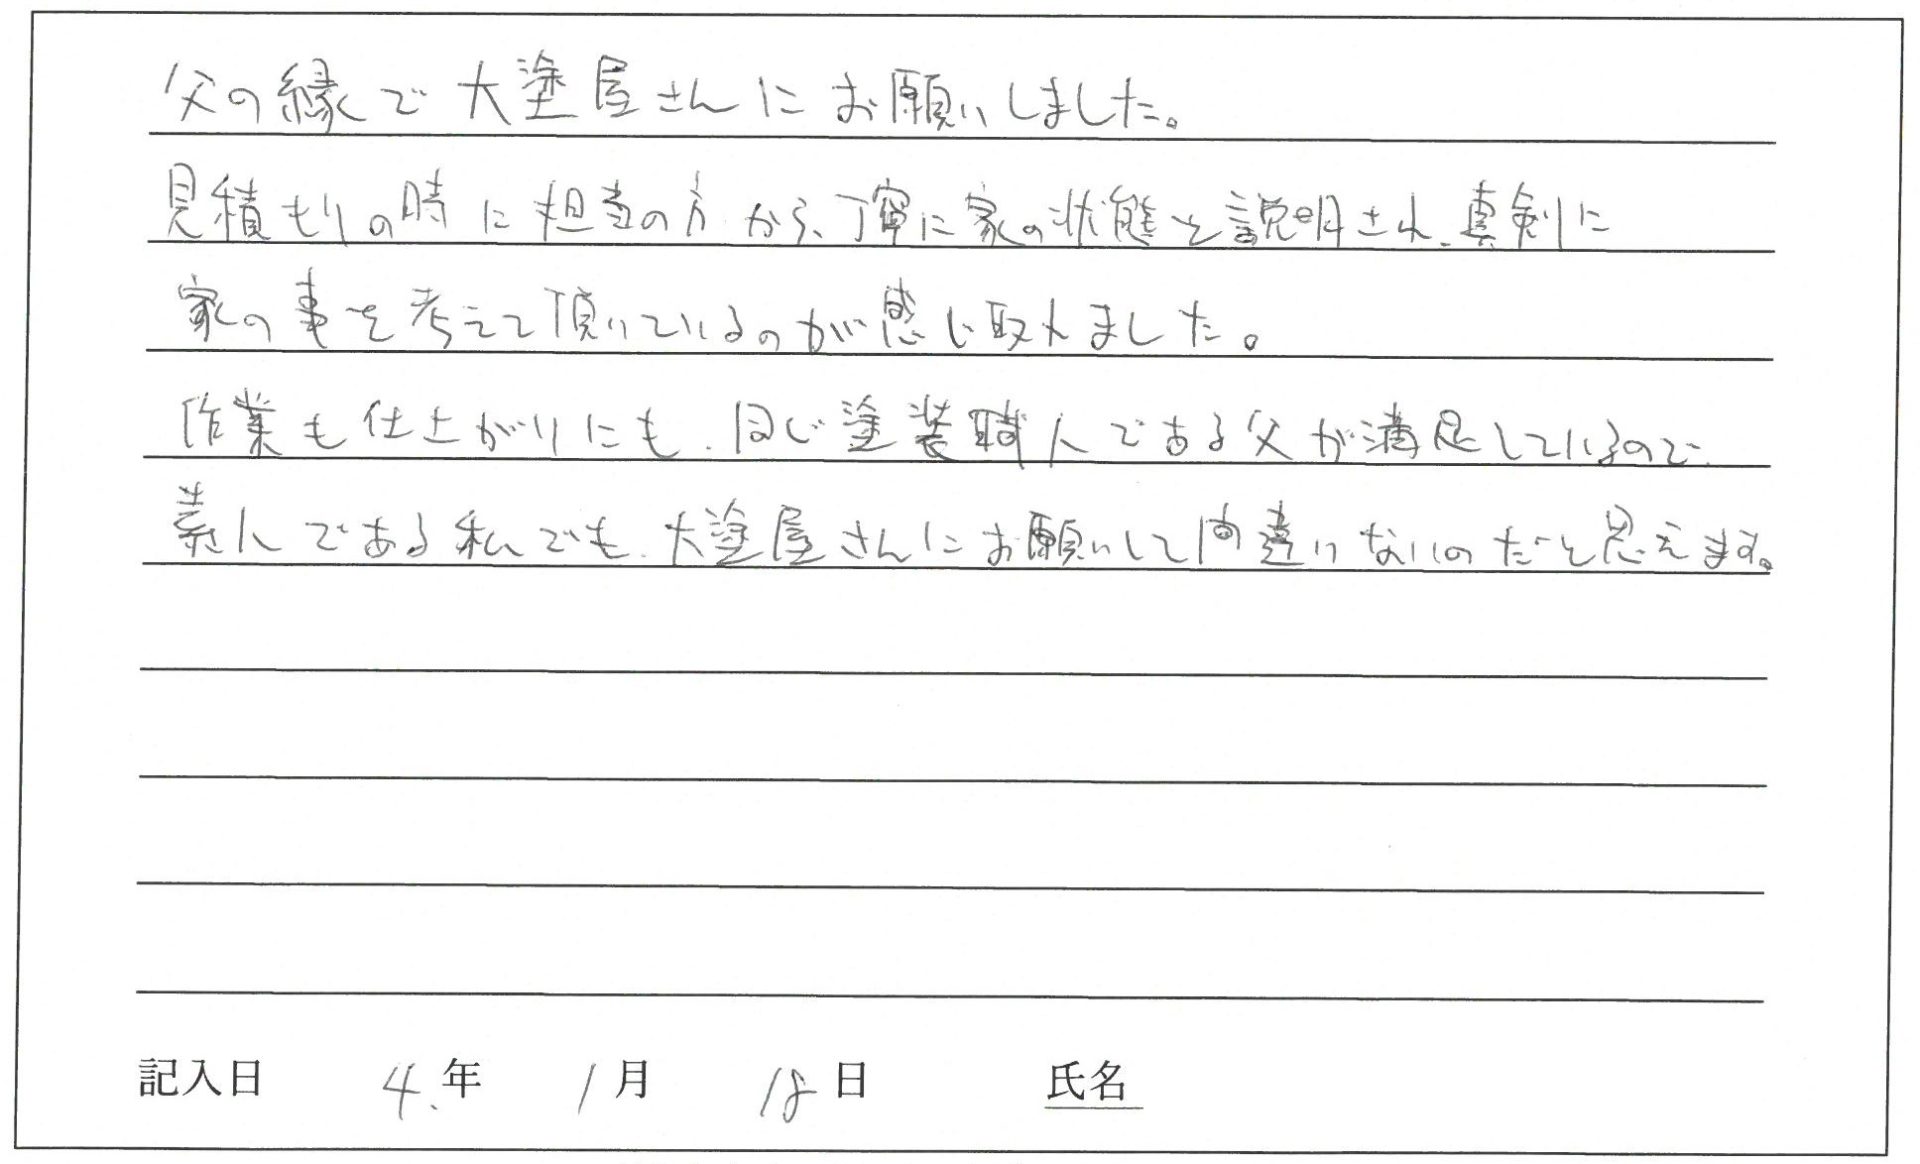 父の縁で大塗屋さんにお願いしました。
見積もりの時に担当の方から、丁寧に家の状態を説明され、真剣に
家の事を考えて頂いているのが感じ取れました。
作業も仕上がりにも、同じ塗装職人である父が満足しているので、
素人である私でも、大塗屋さんにお願いして間違いないのだと思えます。
記入日 4.年 1月 18日 氏名